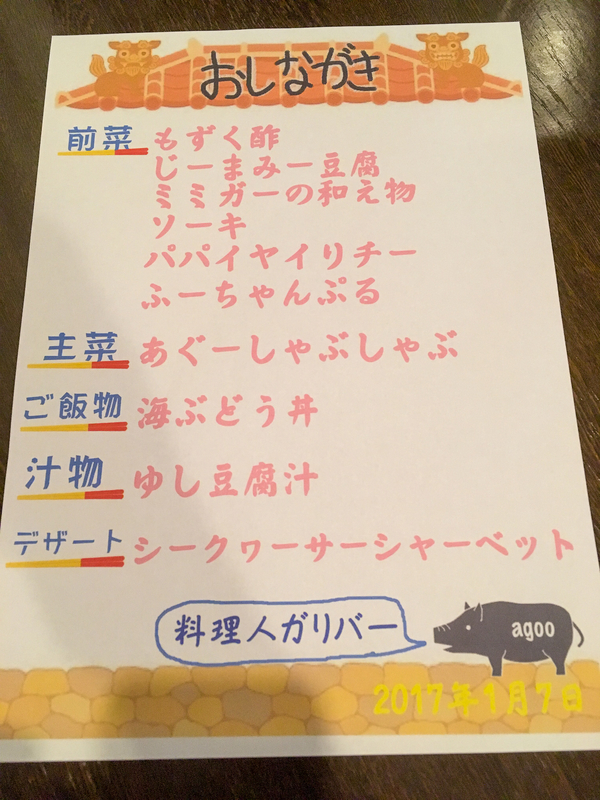 おしながき
前菜 もずく酢
じーまみー豆腐
ミミガーの和え物
ソーキ
パパイヤイリチー
ふーちゃんぷる
主菜 あぐーしゃぶしゃぶ
ご飯物 海ぶどう丼
汁物 ゆし豆腐汁
デザート シークヮーサーシャーベット
料理人ガリバー
agoo
2017年1月7日